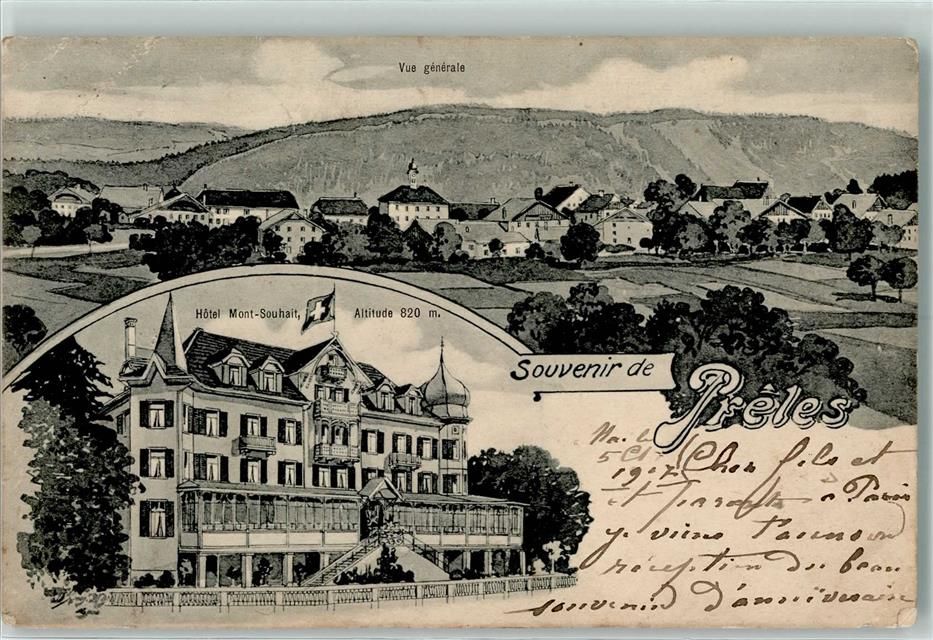 Vue générale
Hôtel Mont-Souhait, Altitude 820 m.
Souvenir de
Prêles
1917 Cher fils et
et à Paris
je viens
réception du beau
souvenir d'anniversaire